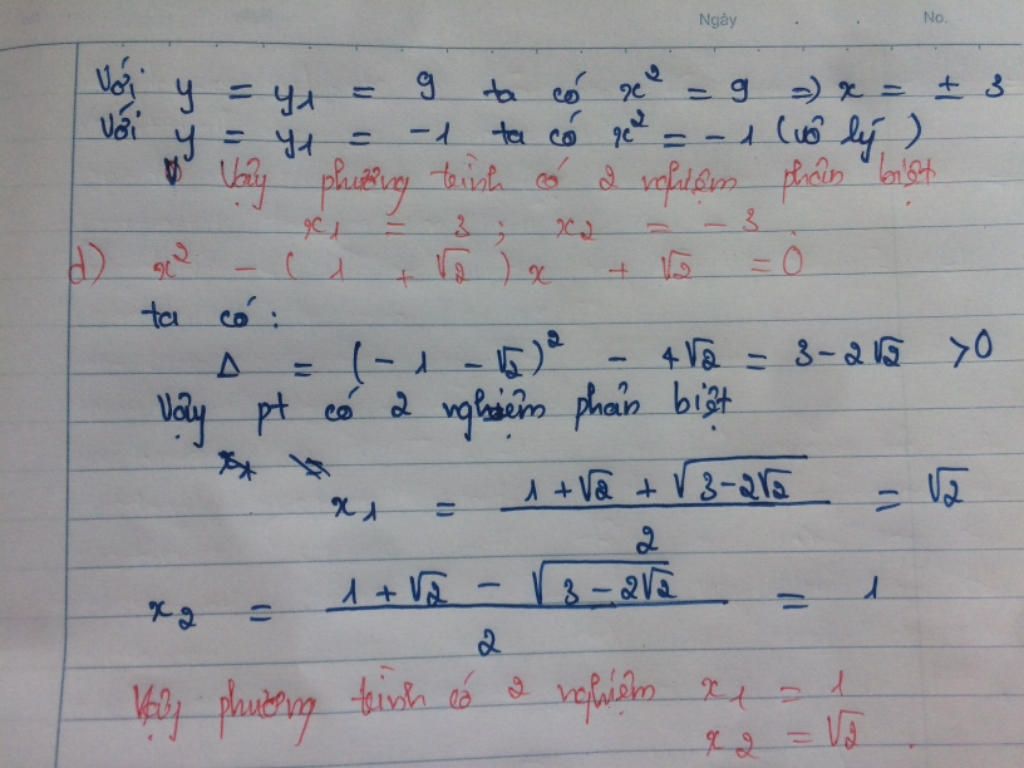 Ngày . . No.
Với y = y₁ = 9 ta có x² = 9 ⇒ x = ± 3
Với y = y₁ = -1 ta có x² = -1 (vô lý)
Vậy phương trình có 2 nghiệm phân biệt
x₁ = 3 ; x₂ = -3.
d) x² - (1 + √2)x + √2 = 0
ta có:
Δ = (-1 - √2)² - 4√2 = 3 - 2√2 > 0
Vậy pt có 2 nghiệm phân biệt
x₁ = (1 + √2 + √(3 - 2√2)) / 2 = √2
x₂ = (1 + √2 - √(3 - 2√2)) / 2 = 1
Vậy phương trình có 2 nghiệm x₁ = 1
x₂ = √2.